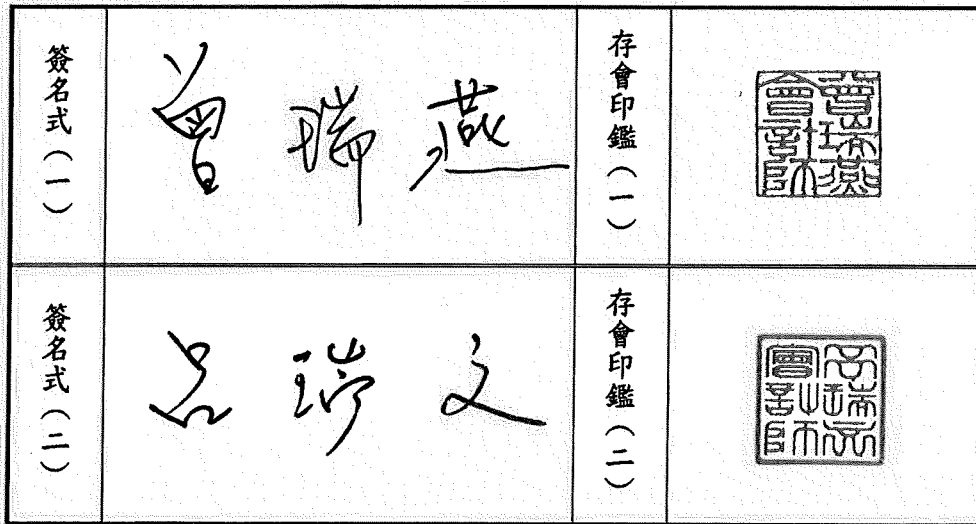 簽名式(一)
曾瑞燕
存會印鑑(一)
曾瑞燕會計師
簽名式(二)
瑞文
存會印鑑(二)
會計師